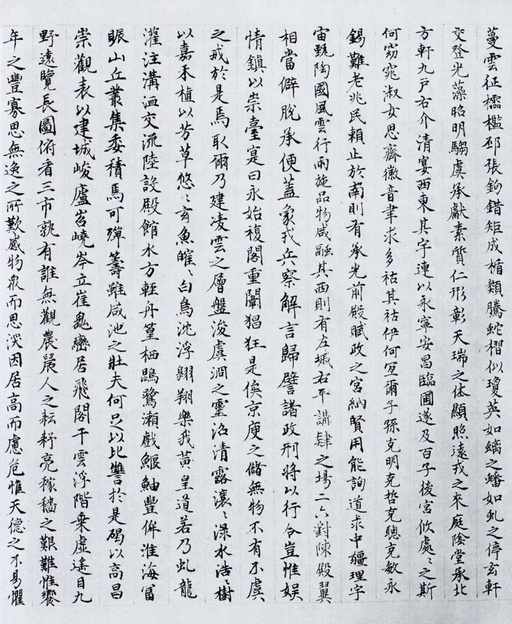 蔓雲征欞檻邳張鉤錯矩成楯類騰蛇槢似瓊英如螭之蟠如虬之停玄軒
交登光藻昭明騶虞承獻素質仁形彰天瑞之休顯照遠戎之來庭陰堂承北
方軒九戶右介清宴西東其宇連以永寧安昌臨圃遂及百子後宮攸處〻之斯
何窈窕淑女思齊徽音聿求多祜其祜伊何宜爾子孫克明克哲克聰克敏永
錫難老兆民賴止於南則有承光前殿賦政之宮納賢用能詢道求中疆理宇
宙甄陶國風雲行雨施品物咸融其西則有左墄右平講肄之場二六對陳殿翼
相當僻脫承便蓋象戎兵察解言歸譬諸政刑將以行令豈惟娛
情鎮以崇臺寔曰永始複閣重闈猖狂是俟京庾之儲無物不有不虞
之戒於是焉取爾乃建淩雲之層盤浚虞淵之靈沼清露瀼〻淥水浩〻樹
以嘉木植以芳草悠〻玄魚曤〻白鳥沈浮翱翔樂我黃皇道若乃虬龍
灌注溝洫交流陸設殿館水方輕舟篁栖鵾鷺瀨戲鰋鮋豐侔淮海富
賑山丘叢集委積焉可殫籌雖咸池之壯夫何足以比讐於是碣以高昌
崇觀表以建城峻廬岧嶢岑立崔嵬巒居飛閣干雲浮階乘虛遙目九
野遠覽長圖俯看三市孰有誰無觀農農人之耘耔亮稼穡之艱難惟饗
年之豐寡思無逸之所歎感物衆而思深因居高而慮危惟天德之不易懼